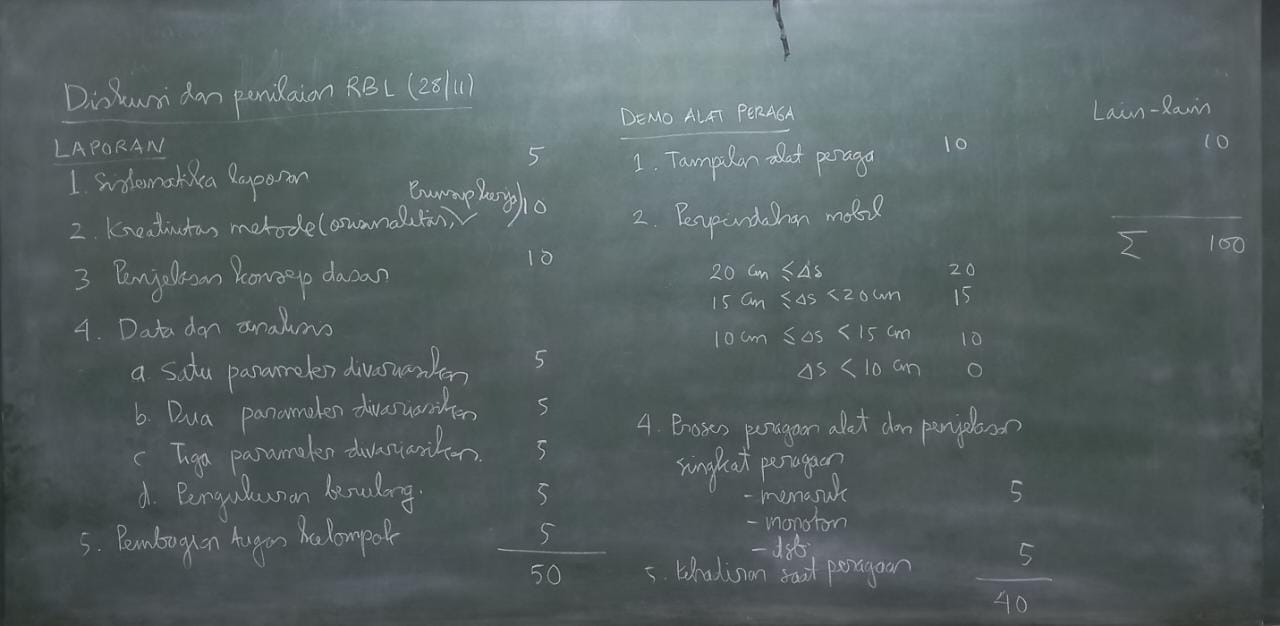 Diskusi dan penilaian RBL (28/11)
LAPORAN
1. Sistematika laporan 5
prinsip kerja
2. Kreativitas metode (orisinalitas, ) 10
3 Penjelasan konsep dasar 10
4. Data dan analisis
a. Satu parameter divariasikan 5
b. Dua parameter divariasikan 5
c Tiga parameter divariasikan. 5
d. Pengukuran berulang. 5
5. Pembagian tugas kelompok 5
50
DEMO ALAT PERAGA
1. Tampilan alat peraga 10
2. Perpindahan mobil
20 cm ≤ Δs 20
15 cm ≤ Δs < 20 cm 15
10 cm ≤ Δs < 15 cm 10
Δs < 10 cm 0
4. Proses peragaan alat dan penjelasan
singkat peragaan
- menarik 5
- monoton
- dsb
5. Kehadiran saat peragaan 5
40
Lain-lain
10
Σ 100